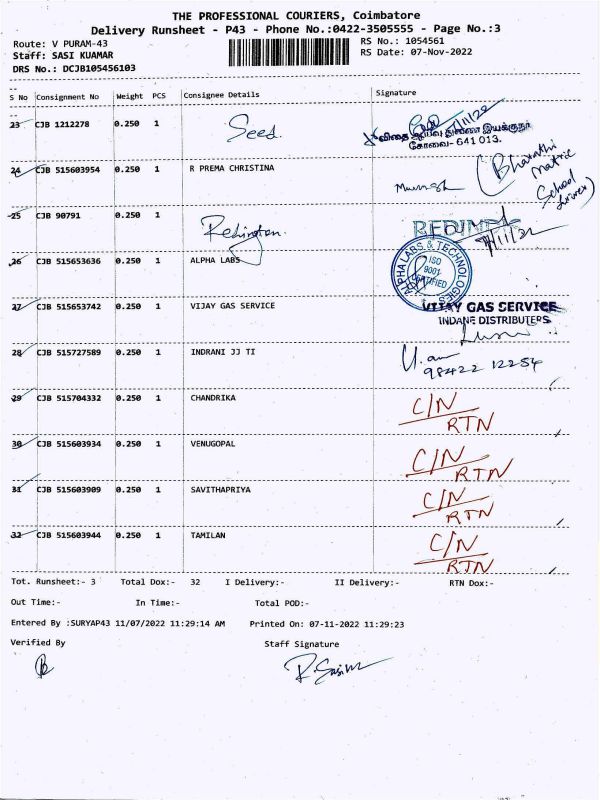 THE PROFESSIONAL COURIERS, Coimbatore
Delivery Runsheet - P43 - Phone No.:0422-3505555 - Page No.:3
Route: V PURAM-43 RS No.: 1054561
Staff: SASI KUAMAR RS Date: 07-Nov-2022
DRS No.: DCJB105456103
S No Consignment No Weight PCS Consignee Details Signature
23 CJB 1212278 0.250 1 Seed.
விதை ஆய்வு துணை இயக்குநர்
கோவை- 641 013.
24 CJB 515603954 0.250 1 R PREMA CHRISTINA
(Bharathi
Matric
School
25 CJB 90791 0.250 1 Redington.
26 CJB 515653636 0.250 1 ALPHA LABS
ALPHA LABS & TECHNOLOGIES
ISO
9001
CERTIFIED
27 CJB 515653742 0.250 1 VIJAY GAS SERVICE VIJAY GAS SERVICE
INDANE DISTRIBUTERS
28 CJB 515727589 0.250 1 INDRANI JJ TI
98422 12254
29 CJB 515704332 0.250 1 CHANDRIKA C/N
RTN
30 CJB 515603934 0.250 1 VENUGOPAL C/N
RTN
31 CJB 515603909 0.250 1 SAVITHAPRIYA C/N
RTN
32 CJB 515603944 0.250 1 TAMILAN C/N
RTN
Tot. Runsheet:- 3 Total Dox:- 32 I Delivery:- II Delivery:- RTN Dox:-
Out Time:- In Time:- Total POD:-
Entered By :SURYAP43 11/07/2022 11:29:14 AM Printed On: 07-11-2022 11:29:23
Verified By Staff Signature